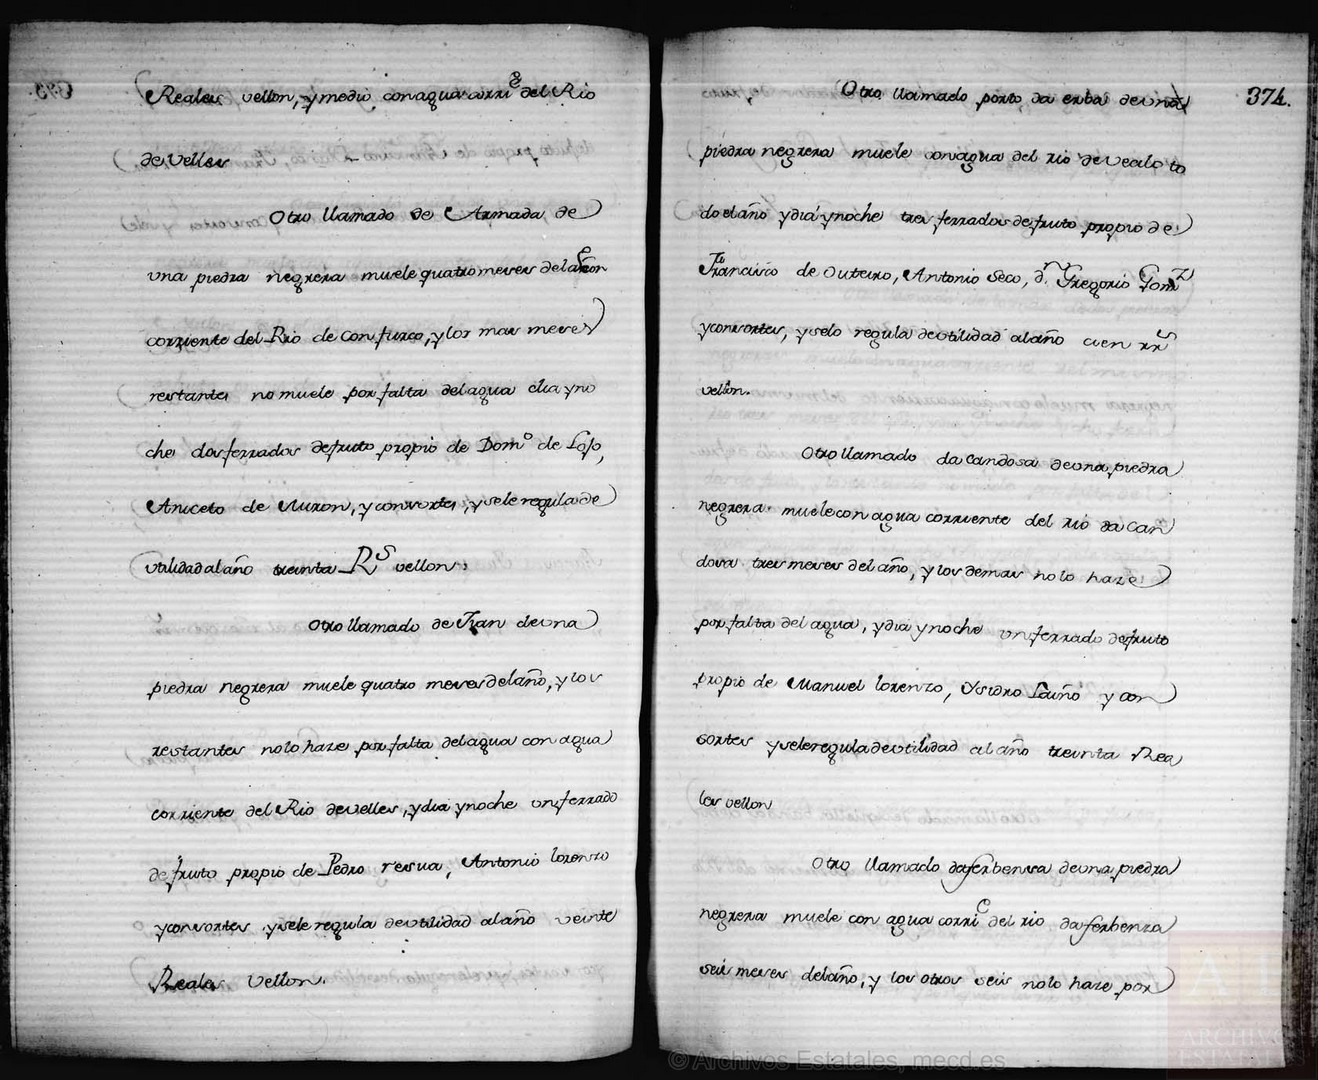 Reales vellon, y medio con agua corri.e del Rio
de Velles
Otro llamado de Armada de
una piedra negrera muele quatro meses del año con
corriente del Rio de confurco, y los mas meses
restantes no muele por falta del agua dia y no
che dos ferrados de fruto propio de Dom.o de
Aniceto de y consortes, y se le regula de
utilidad al año treinta R.s vellon.
Otro llamado de Fran de una
piedra negrera muele quatro meses del año, y los
restantes no lo haze por falta del agua con agua
corriente del Rio de velles, y dia y noche un ferrado
de fruto propio de Pedro resua, Antonio lorenzo
y consortes y se le regula de utilidad al año veinte
Reales Vellon.
374.
Otro llamado porto da erba de una
piedra negrera muele con agua del rio de to
do el año y dia y noche tres ferrados de fruto propio de
Francisco de Outeiro, Antonio Seco, d.n Gregorio Gom.z
y consortes, y se lo regula de utilidad al año cien rr.s
vellon.
Otro llamado da Candosa de una piedra
negrera muele con agua corriente del rio da Can
dosa tres meses del año, y los demas no lo haze
por falta del agua, y dia y noche un ferrado de fruto
propio de Manuel lorenzo, Ysidro y con
sortes y se le regula de utilidad al año treinta Rea
les vellon
Otro llamado da ferbenza de una piedra
negrera muele con agua corri.e del rio da ferbenza
seis meses del año, y los otros seis no lo haze por
© Archivos Estatales, mecd.es
ARCHIVOS
ESTATALES